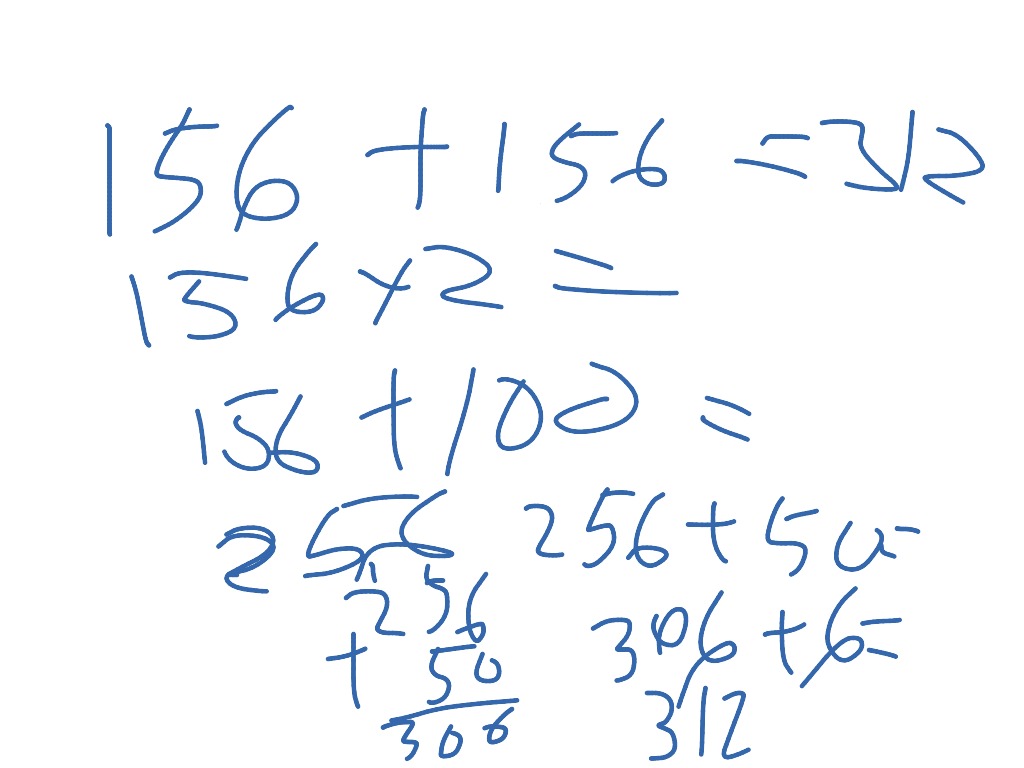 156 + 156 = 312
156 x 2 =
156 + 100 =
256
256 + 50 =
1
256
+ 50
306
306 + 6 =
312